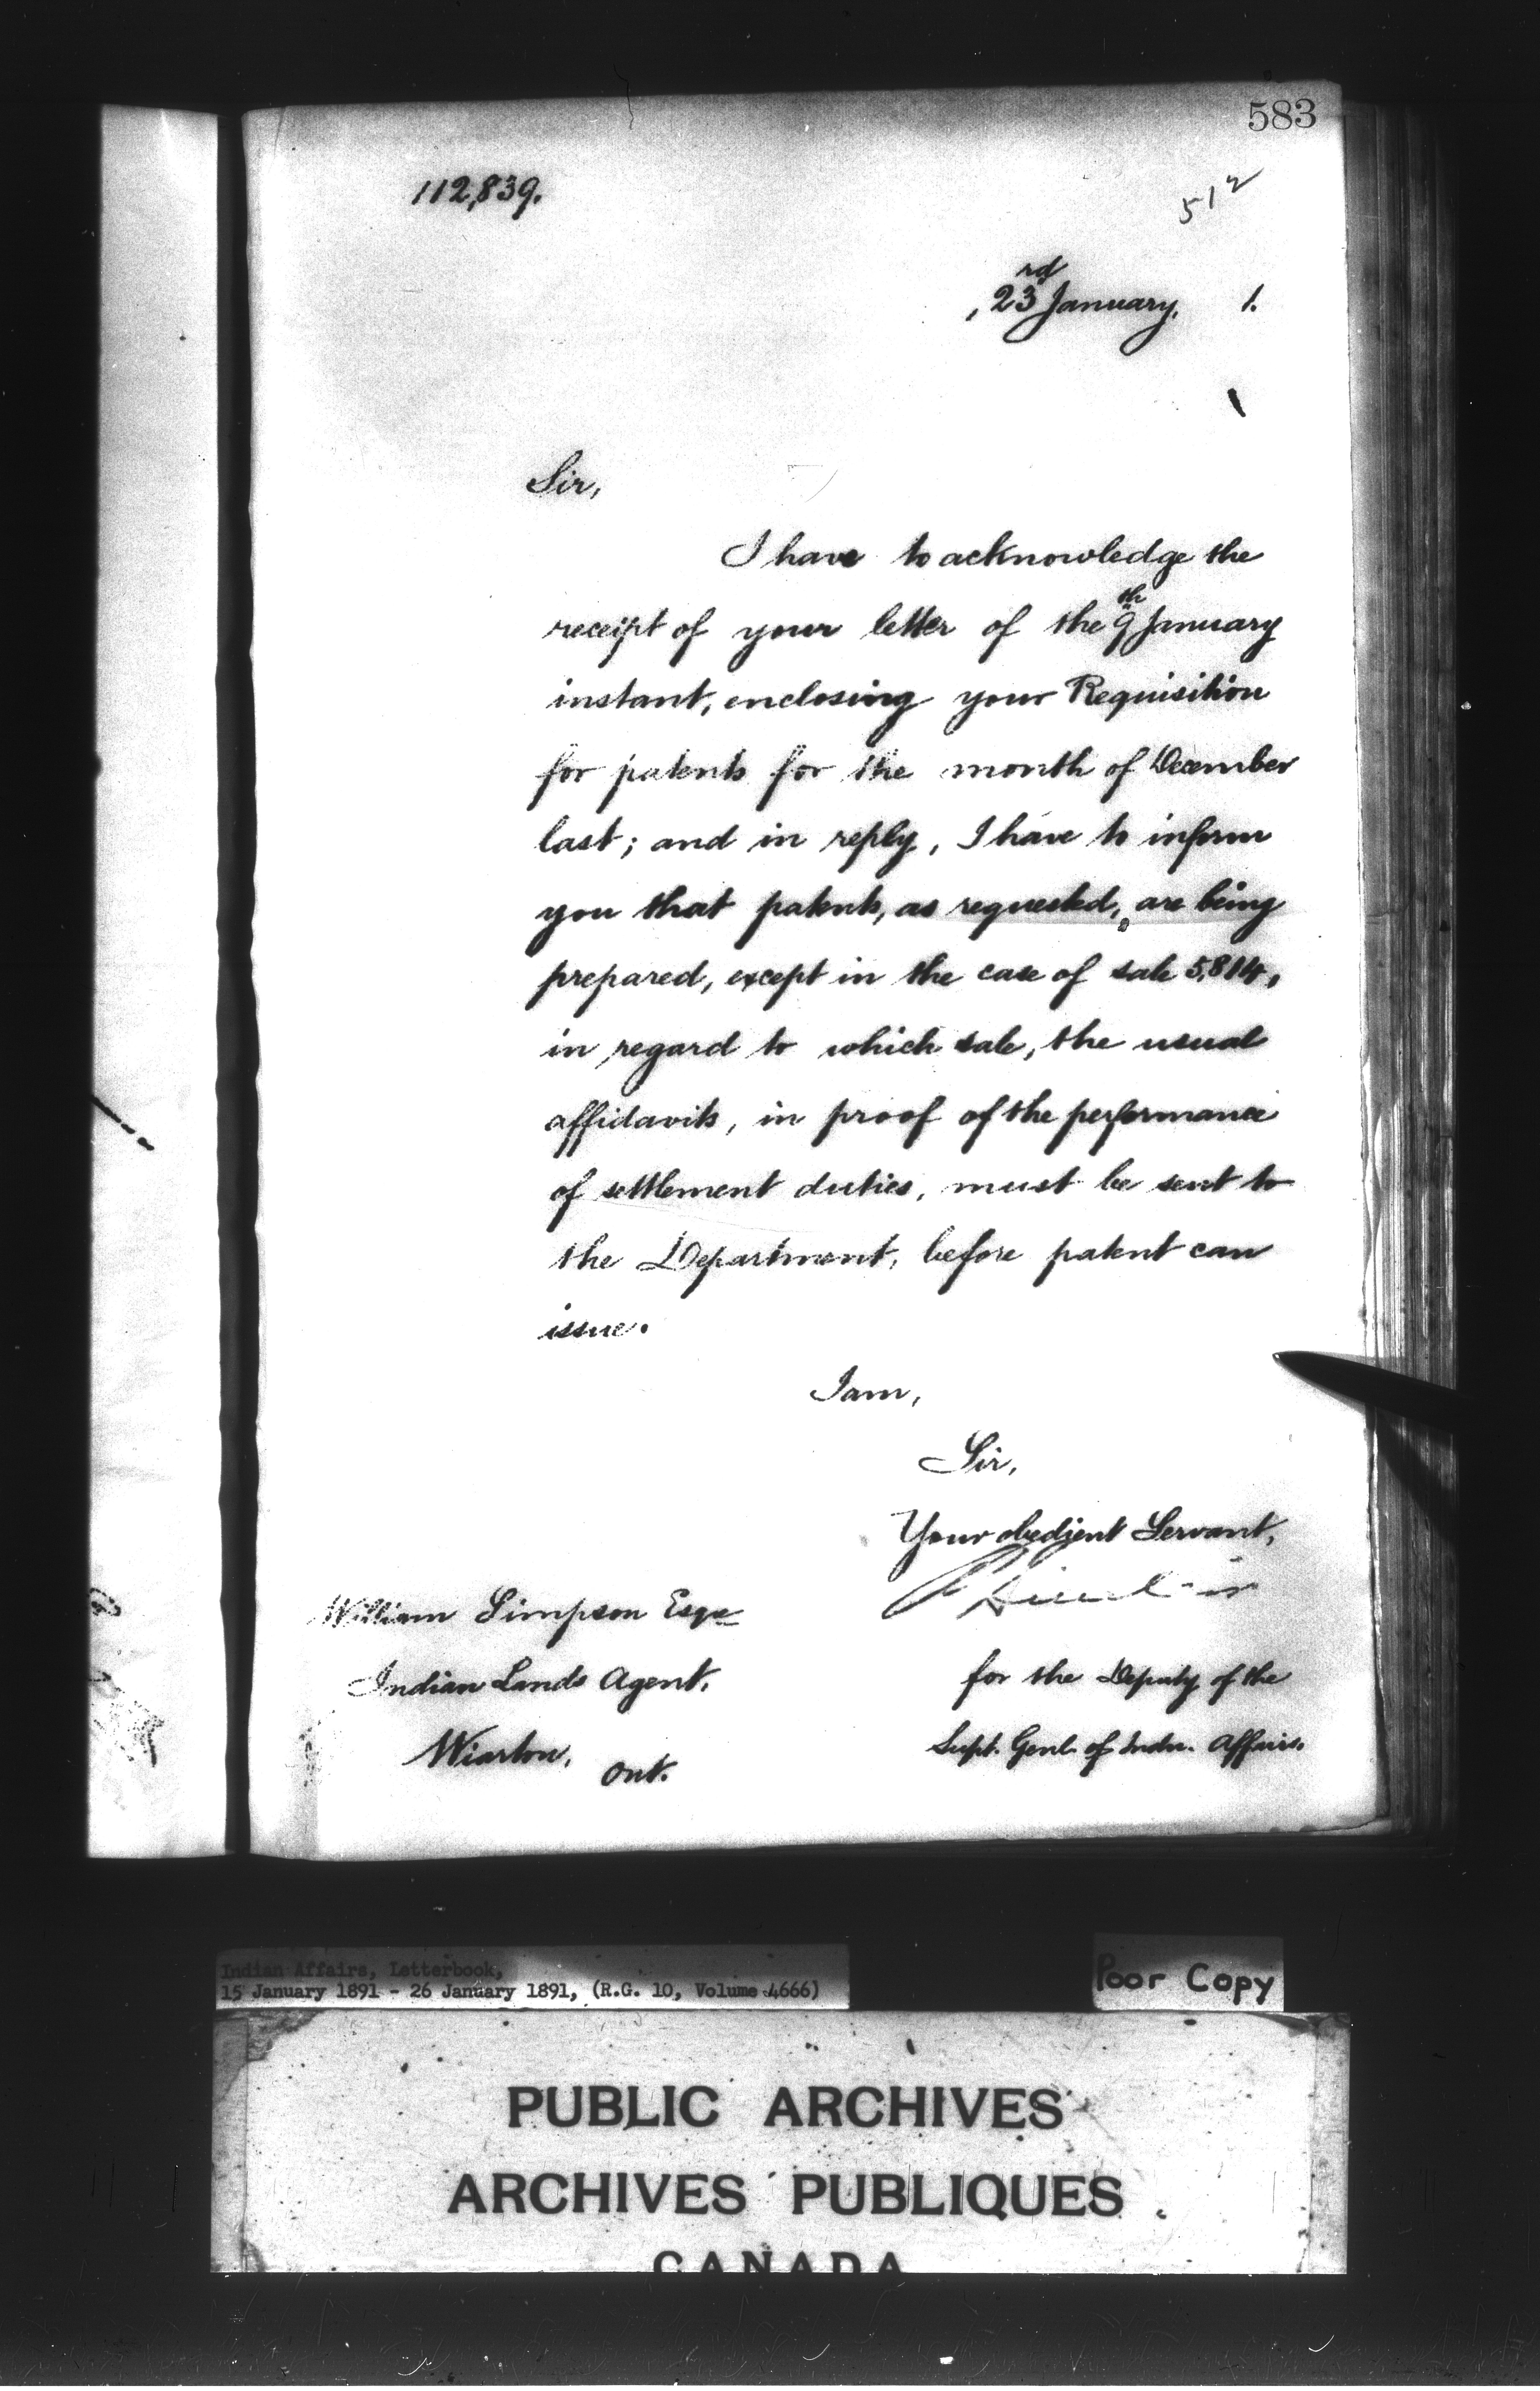 583
112,839.
512
23rd January, 1.
Sir,
I have to acknowledge the
receipt of your letter of the 9th January
instant, enclosing your Requisition
for patents for the month of December
last; and in reply, I have to inform
you that patents, as requested, are being
prepared, except in the case of sale 5,814,
in regard to which sale, the usual
affidavits, in proof of the performance
of settlement duties, must be sent to
the Department, before patent can
issue.
I am,
Sir,
Your obedient Servant,
William Simpson Esqre
Indian Lands Agent,
Wiarton, Ont.
for the Deputy of the
Supt. Genl. of Indn. Affairs.
Indian Affairs, Letterbook,
15 January 1891 - 26 January 1891, (R.G. 10, Volume 4666)
Poor Copy
PUBLIC ARCHIVES
ARCHIVES PUBLIQUES
CANADA